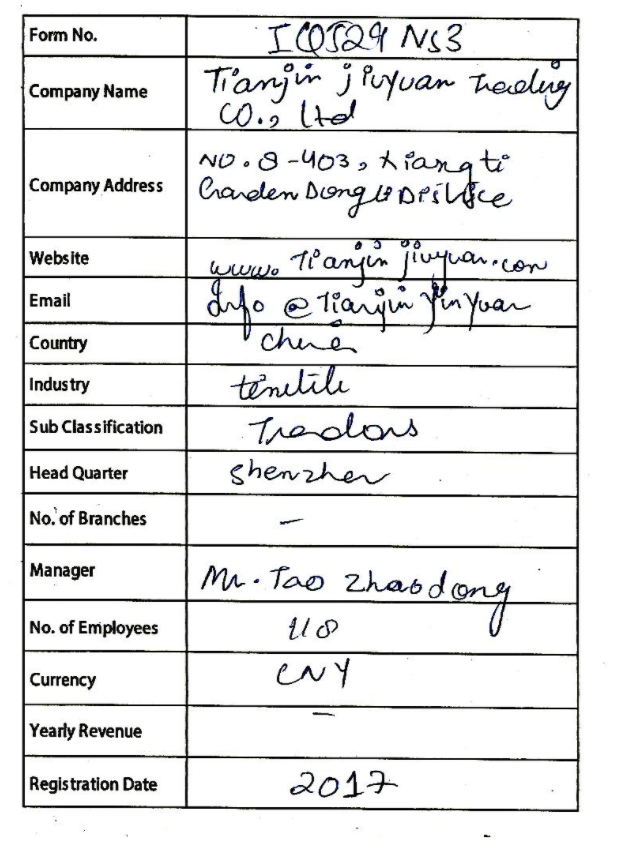 Form No. ICQ529 NS3
Company Name Tianjin jiuyuan Trading
CO., Ltd
Company Address NO. 8-403, Xiangti
Garden Dongli District
Website www. Tianjin jiuyuan.com
Email Info @ Tianjin jinyuan
Country China
Industry textile
Sub Classification Traders
Head Quarter Shenzhen
No. of Branches –
Manager Mr. Tao Zhaodong
No. of Employees 110
Currency CNY
Yearly Revenue –
Registration Date 2017